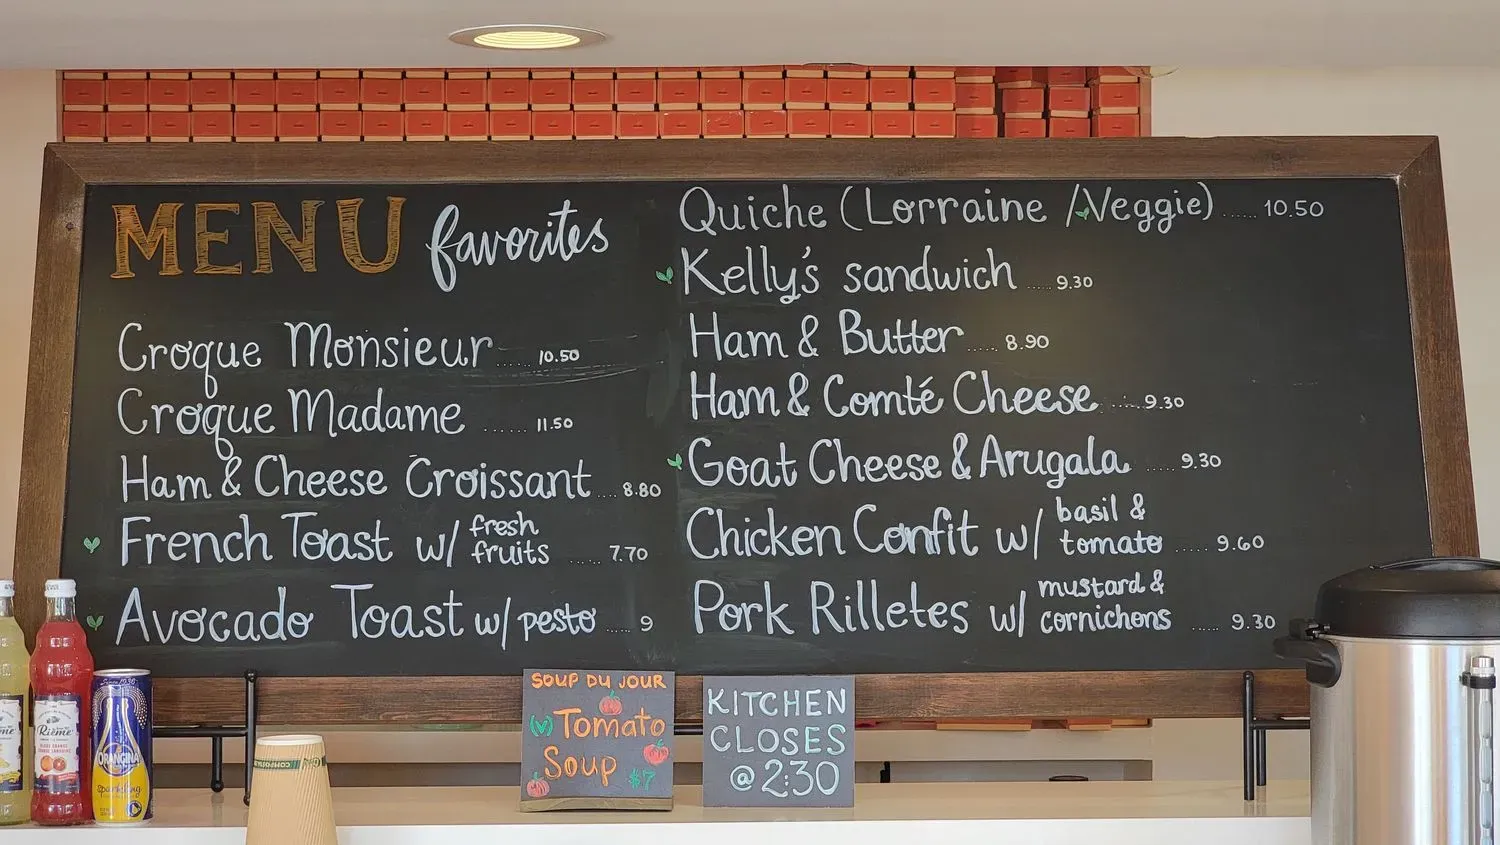 MENU favorites
Croque Monsieur ..... 10.50
Croque Madame ...... 11.50
Ham & Cheese Croissant .... 8.80
French Toast w/ fresh
fruits ...... 7.70
Avocado Toast w/ pesto ..... 9
Quiche (Lorraine / Veggie) ..... 10.50
Kelly's sandwich ..... 9.30
Ham & Butter ..... 8.90
Ham & Comté Cheese ..... 9.30
Goat Cheese & Arugala ..... 9.30
Chicken Confit w/ basil &
tomato ..... 9.60
Pork Rilletes w/ mustard &
cornichons ..... 9.30
SOUP DU JOUR
(V) Tomato
Soup $7
KITCHEN
CLOSES
@ 2:30
Rième
Since 1936
ORANGINA
Sparkling